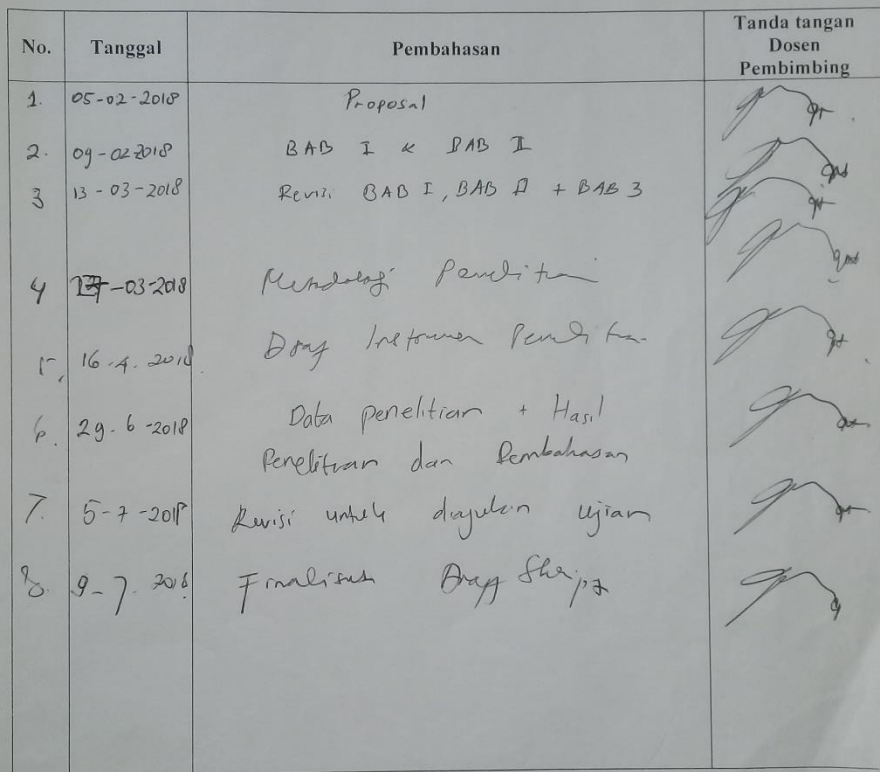 No. Tanggal Pembahasan Tanda tangan
Dosen
Pembimbing
1. 05-02-2018 Proposal
2. 09-02-2018 BAB I & BAB II
3 13-03-2018 Revisi BAB I, BAB II + BAB 3
4 -03-2018 Metodologi Penelitian
5. 16.4.2018 Draf Instrumen Penelitian
6. 29.6-2018 Data penelitian + Hasil
Penelitian dan Pembahasan
7. 5-7-2018 Revisi untuk diajukan ujian
8. 9-7.2018 Finalisasi Draft Skripsi